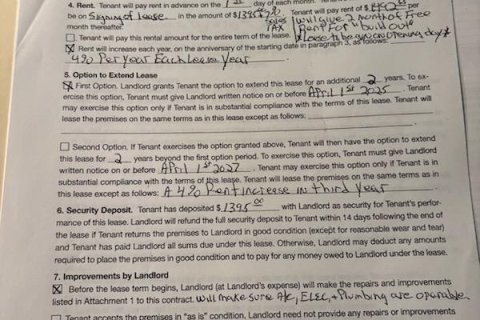 4. Rent. Tenant will pay rent in advance on the 1st day of each month. Tenant will pay rent of $ per
be on Signing of lease in the amount of $1395.00
Sales
TAX
I will give 2 months of Free
Rent For "build out"
Lease to begin on opening day
month thereafter.
☐ Tenant will pay this rental amount for the entire term of the lease.
☒ Rent will increase each year, on the anniversary of the starting date in paragraph 3, as follows:
4% Per Year Each Lease Year
5. Option to Extend Lease
☒ First Option. Landlord grants Tenant the option to extend this lease for an additional 2 years. To ex-
ercise this option, Tenant must give Landlord written notice on or before April 1st 2025. Tenant
may exercise this option only if Tenant is in substantial compliance with the terms of this lease. Tenant will
lease the premises on the same terms as in this lease except as follows:
☐ Second Option. If Tenant exercises the option granted above, Tenant will then have the option to extend
this lease for 2 years beyond the first option period. To exercise this option, Tenant must give Landlord
written notice on or before April 1st 2027. Tenant may exercise this option only if Tenant is in
substantial compliance with the terms of this lease. Tenant will lease the premises on the same terms as in
this lease except as follows: A 4% Rent increase in third year
6. Security Deposit. Tenant has deposited $1395.00 with Landlord as security for Tenant's perfor-
mance of this lease. Landlord will refund the full security deposit to Tenant within 14 days following the end of
the lease if Tenant returns the premises to Landlord in good condition (except for reasonable wear and tear)
and Tenant has paid Landlord all sums due under this lease. Otherwise, Landlord may deduct any amounts
required to place the premises in good condition and to pay for any money owed to Landlord under the lease.
7. Improvements by Landlord
☒ Before the lease term begins, Landlord (at Landlord's expense) will make the repairs and improvements
listed in Attachment 1 to this contract. Will make sure A/c, ELEC, + Plumbing are operable.
☐ Tenant accepts the premises in "as is" condition. Landlord need not provide any repairs or improvements